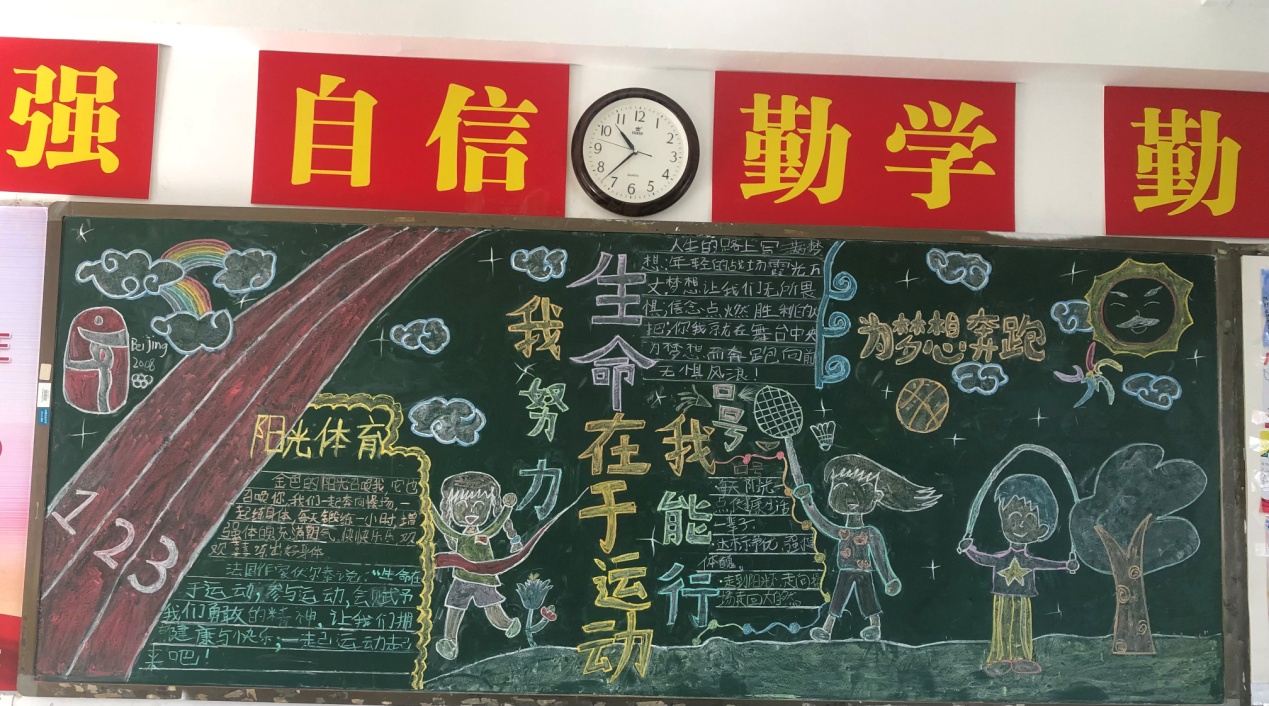 强
自信
勤学
勤
11 12 1
10 2
9 3
8 4
7 6 5
Beijing
2008
1 2 3
阳光体育
金色的阳光召唤我,它也
召唤你,我们一起奔向操场,一
起锻炼身体,每天锻炼一小时,增
强体魄充满朝气
法国作家伏尔泰说:“生命在
于运动,参与运动,会赋予
我们勇敢的精神,让我们拥
健康与快乐,一起运动起
来吧!
我努力
生命在于运动
人生的路上写满梦
想,年轻的战场
梦想让我们无所畏
惧,信念点燃胜利的火
把,你我就在舞台中央
为梦想而奔跑向前
无惧风浪!
口号
我能行
每天阳光一
一辈子
走到阳光
走向大自然
为梦想奔跑